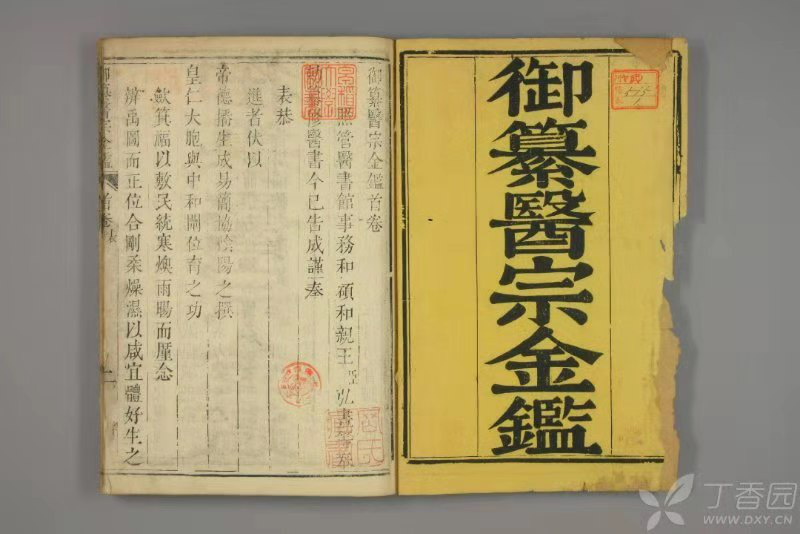 御纂醫宗金鑑
御纂醫宗金鑑首卷
照管醫書館事務和碩和親王臣弘晝等奉
勅纂修醫書今已告成謹奉
表恭
進者伏以
帝德
生成易簡協陰陽之撰
皇仁大胞與中和闢位育之功
歛箕福以敷民統寒燠雨暘而厪念
辨禹圖而正位合剛柔燥濕以咸宜體好生之
御纂醫宗金鑑
首卷
丁香园
WWW.DXY.CN